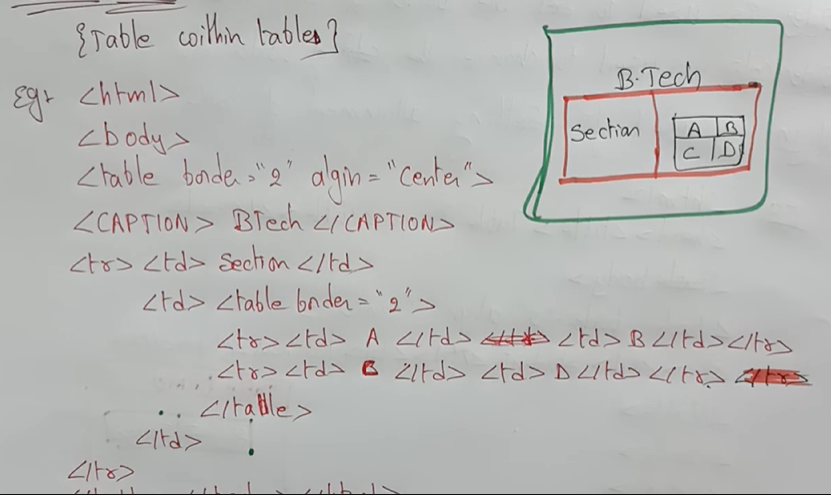 {Table within tables}
Eg:- <html>
<body>
<table border="2" algin="Center">
<CAPTION> BTech </CAPTION>
<tr> <td> Section </td>
<td> <table border="2">
<tr> <td> A </td> <td> B </td> </tr>
<tr> <td> C </td> <td> D </td> </tr>
</table>
</td>
</tr>
B.Tech
Section
A B
C D